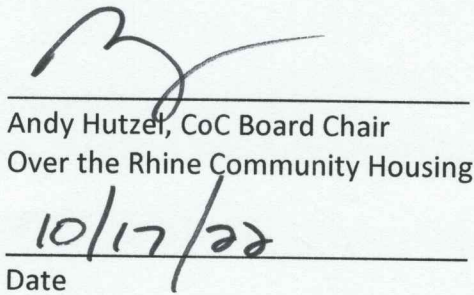 Andy Hutzel, CoC Board Chair
Over the Rhine Community Housing
10/17/22
Date